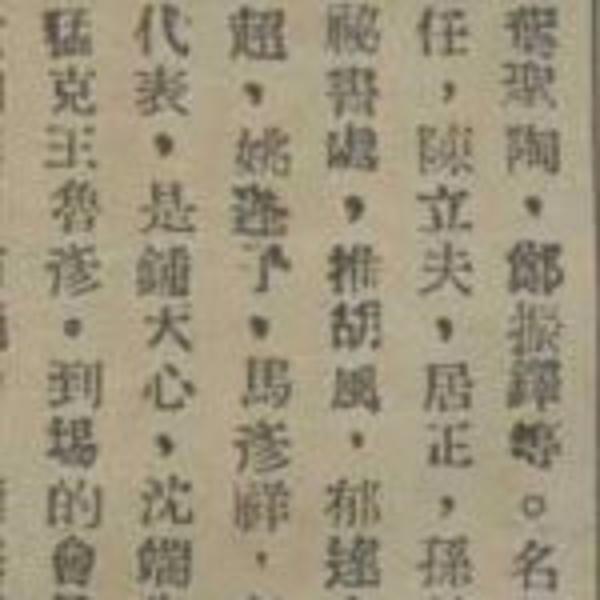 葉聖陶，鄭振鐸等。名
任，陳立夫，居正，孫
祕書處，推胡風，郁達
超，姚蓬子，馬彥祥，
代表，是鋪天心，沈端
猛克王魯彥。到場的會